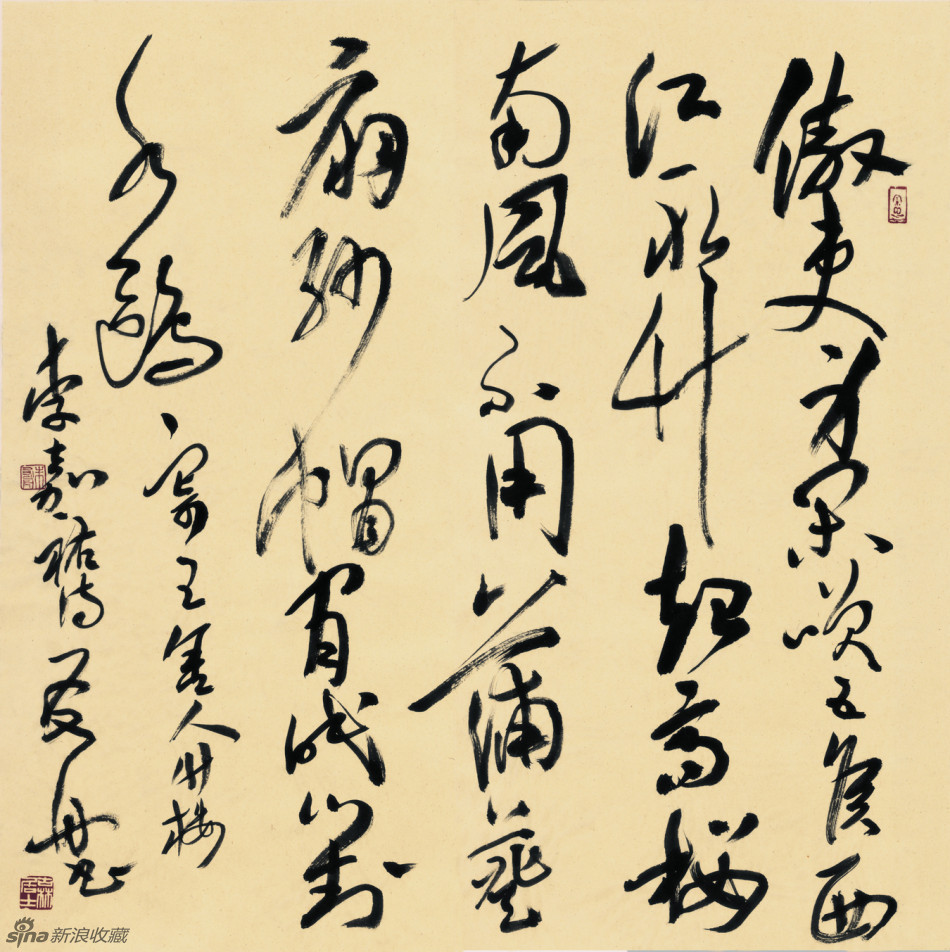 傲吏身閑笑五侯西
江取竹起高樓
南風不用蒲葵
扇紗帽閑眠對
水鷗 寄王舍人竹樓
李嘉祐詩
sina新浪收藏